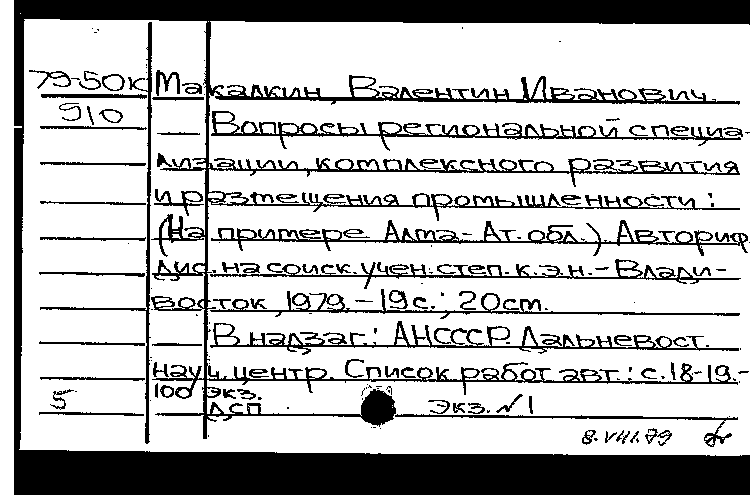 79-50к Макалкин, Валентин Иванович.
910 — Вопросы региональной специа-
лизации, комплексного развития
и размещения промышленности:
(На примере Алма-Ат. обл.). Автореф
дис. на соиск. учен. степ. к.э.н. - Влади-
восток, 1979. - 19 с.; 20 cm.
— В надзаг.: АН СССР. Дальневост.
науч. центр. Список работ авт.: с. 18-19.-
5 100 экз.
ДСП Экз. № 1
8.VIII.79